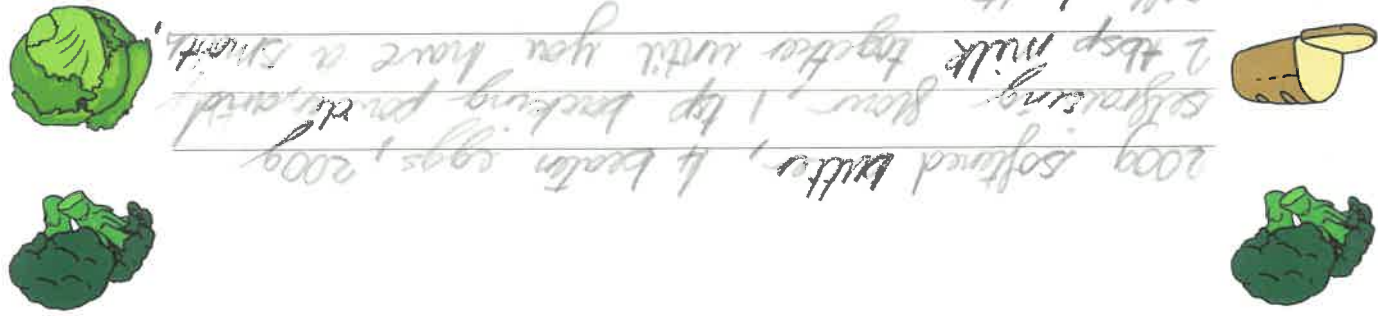 200g softened butter, 4 beaten eggs, 200g
selfraising flour, 1 tsp backing powder, and
2 tbsp milk together until you have a smooth,